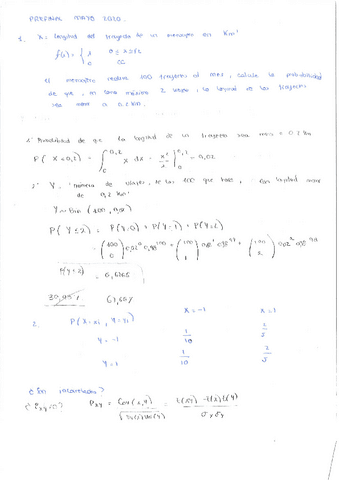 PREPARA MAYO 2020.
1. X = longitud del trayecto de un mensajero en Km
f(x) = { x 0 ≤ x ≤ √2
0 CC
El mensajero realiza 100 trayectos al mes, calcula la probabilidad
de que, en como máximo 2 la longitud en los trayectos
sea menor a 0,2 km.
1º Probabilidad de que la longitud de un trayecto sea menor a 0,2 km
P( X < 0,2) = ∫₀^0,2 x dx = x²/2 |₀^0,2 = 0,02
2º Y = "número de viajes, de los 100 que hace, con longitud menor
de 0,2 km"
Y ~ Bin (100, 0,02)
P( Y ≤ 2) = P(Y=0) + P(Y=1) + P(Y=2)
= (100 0) 0,02⁰ 0,98¹⁰⁰ + (100 1) 0,02¹ 0,98⁹⁹ + (100 2) 0,02² 0,98⁹⁸
P(Y ≤ 2) = 0,6765
67,65%
2. P(X=xi, Y=yi) X=-1 X=1
Y=-1 1/10 2/5
Y=1 1/10 2/5
¿Son incorreladas?
¿ρxy=0? ρxy = Cov(x,y) / √Var(x)Var(y) = E(xy) - E(x)E(y) / σx σy